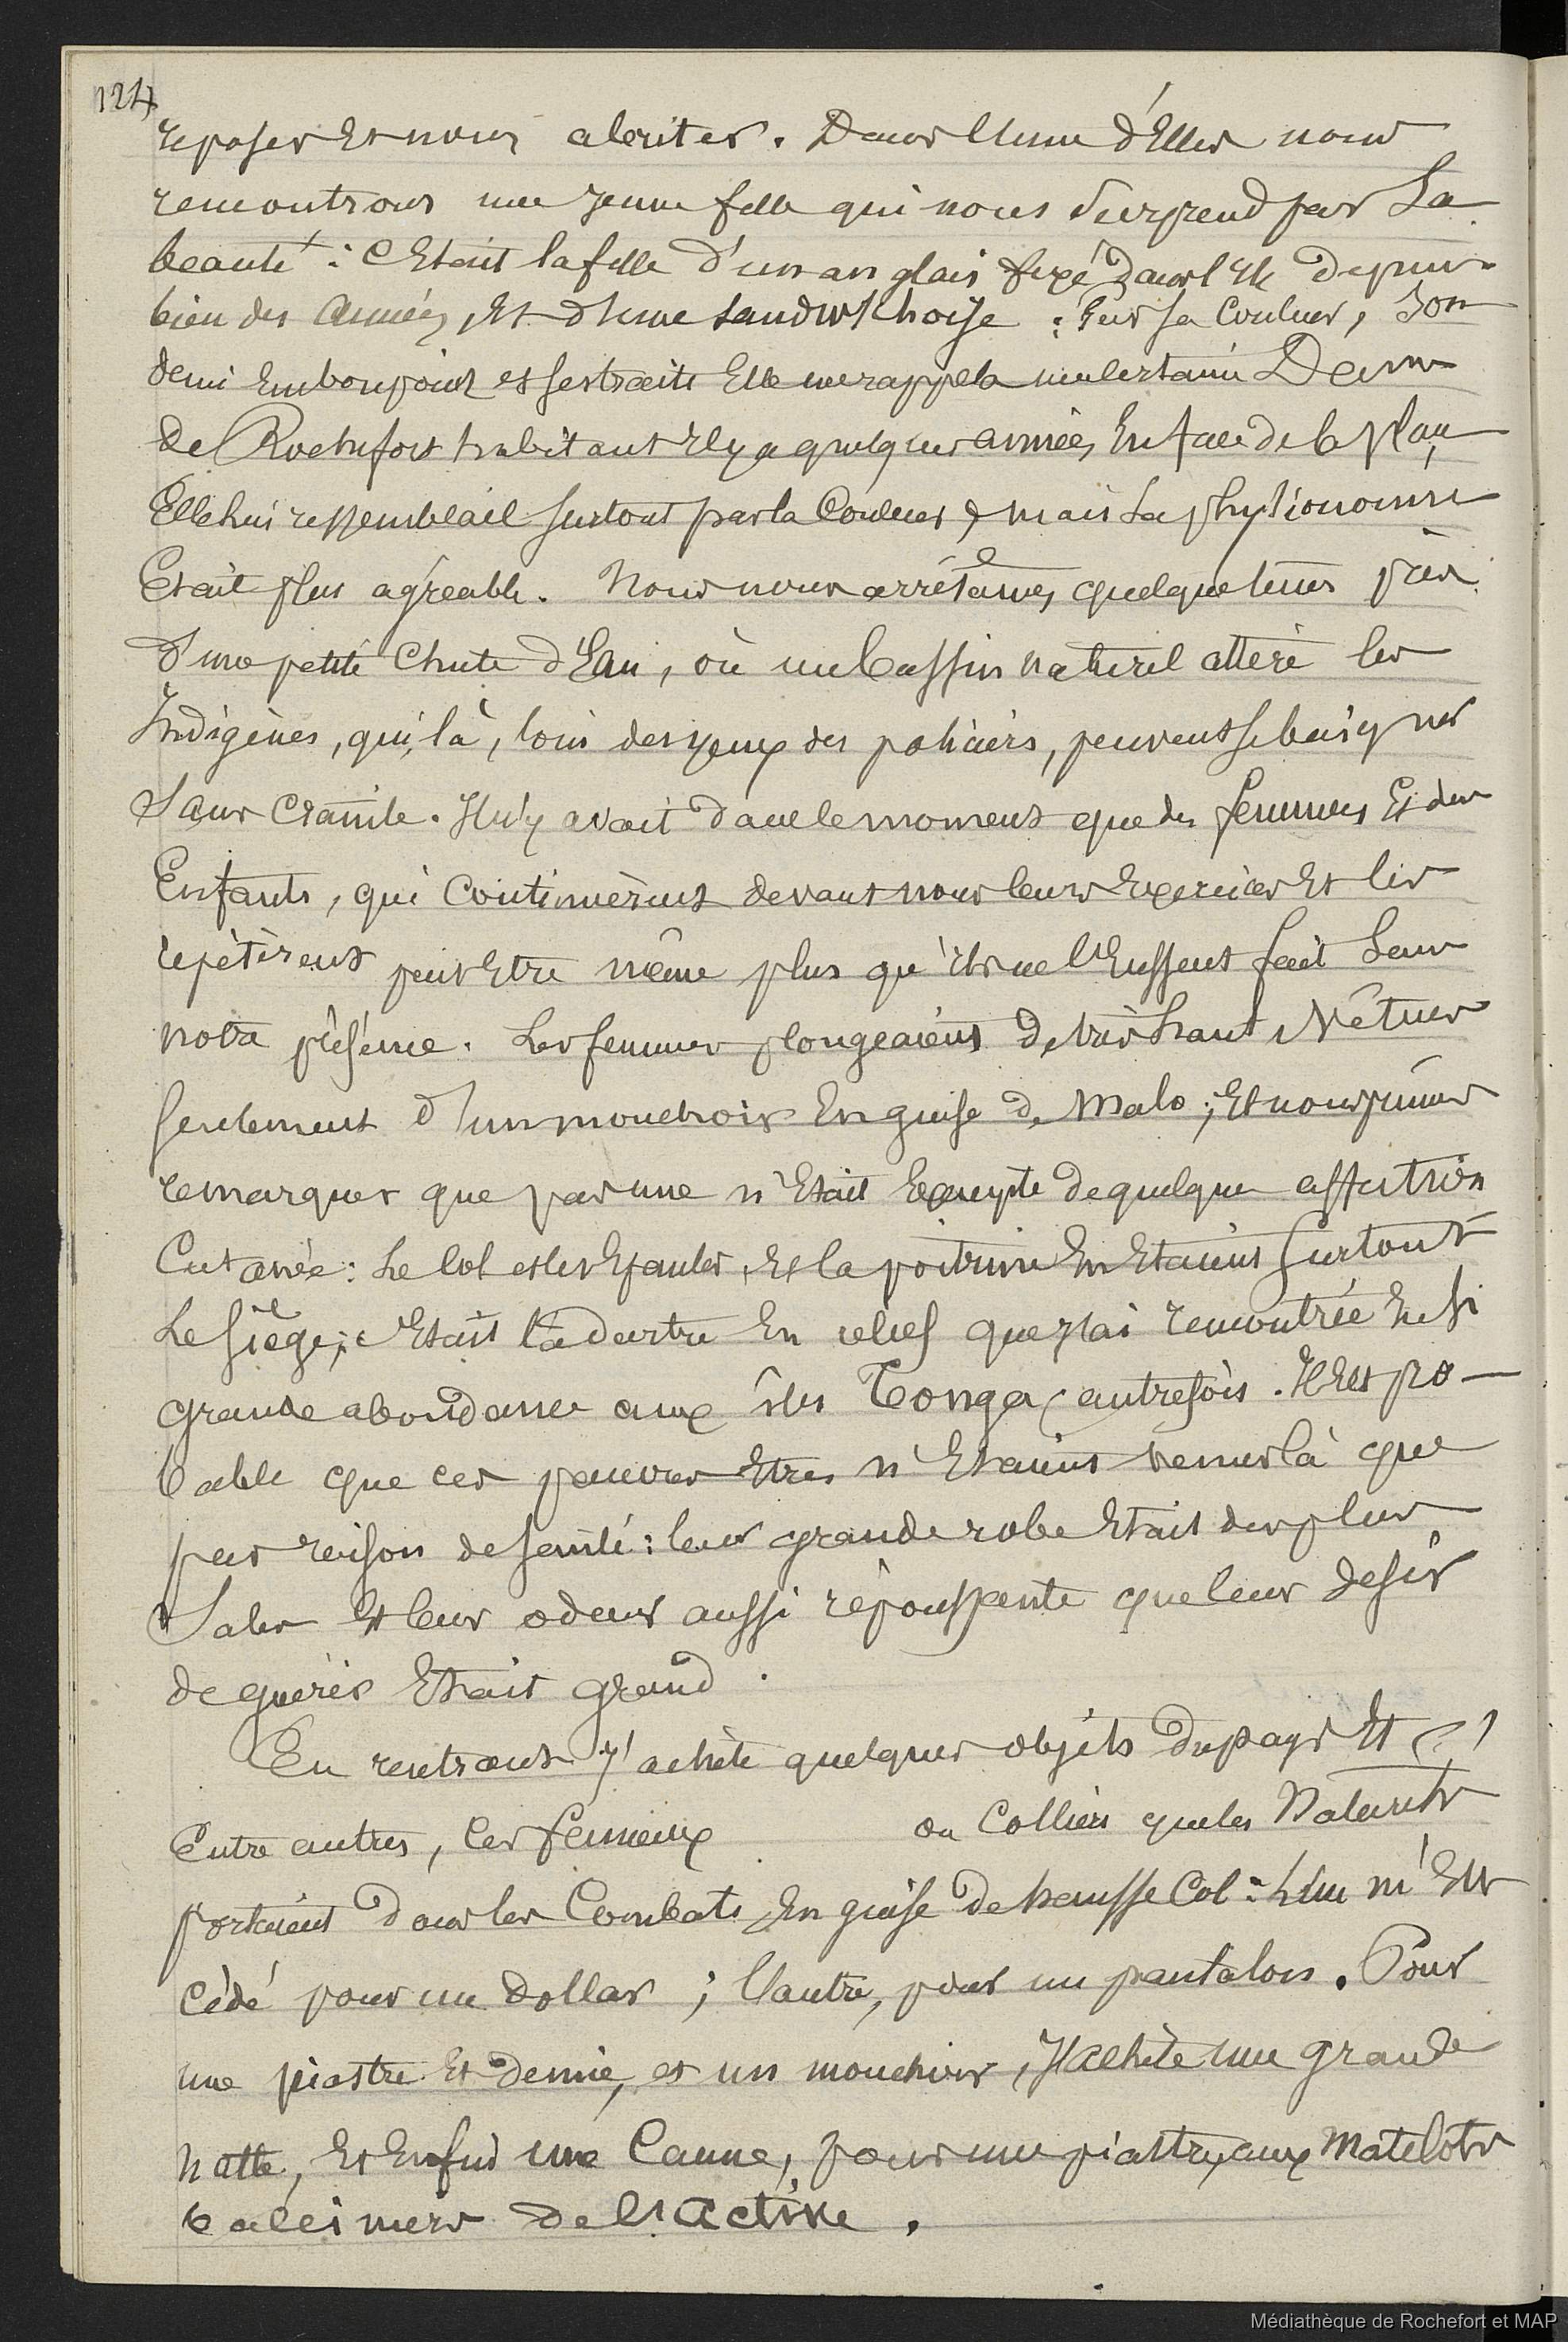 124
reposer Et nous abriter. Dans l'une d'Elles nous
rencontrons une jeune fille qui nous surprend par sa
beauté : C'Etait la fille d'un anglais fixé dans l'Ile depuis
bien des années, Et d'une sandwichoise : Par sa Couleur, son
demi Embonpoint et ses traits Elle me rappela une certaine Dame
de Rochefort habitant il y a quelques années En face de la place
Elle lui ressemblait surtout par la Couleur, mais sa physionomie
Etait plus agréable. Nous nous arrêtames quelque tems près
d'une petite Chute d'Eau, où un bassin naturel attire les
Indigènes, qui, là, loin des yeux des policiers, peuvent se baigner
Sans Crainte. Il n'y avait dans le moment que des femmes Et des
Enfants, qui Continuèrent devant nous leurs Exercices Et les
repétèrent peut Etre même plus qu'ils ne l'Eussent fait sans
notre présence. Les femmes plongeaient de très haut, Vêtues
seulement d'un mouchoir En guise de Malo ; Et nous pûmes
remarquer que pas une n'Etait Exempte de quelque affection
Cutanée : Le Col et les Epaules, Et la poitrine En Etaient surtout
Le siège ; c'Etait la dartre En relief que j'ai rencontrée En si
grande abondance aux îles Tonga, autrefois. Il Est pro-
bable que ces pauvres Etres n'Etaient venus là que
par raison de santé : leur grande robe Etait des plus
Sales Et leur odeur aussi répoussante que leur désir
de guérir Etait grand.
En rentrant j'achète quelques objets du pays Et
Entre autres, ces fameux ou Colliers que les Naturels
portaient dans les Combats En guise de hausse Col : L'un m'Est
Cédé pour un Dollar ; l'autre, pour un pantalon. Pour
une piastre Et demie, et un mouchoir, j'achète une grande
natte, Et Enfin une Canne, pour une piastre, aux Matelots
baleiniers de l'Active.
Médiathèque de Rochefort et MAP